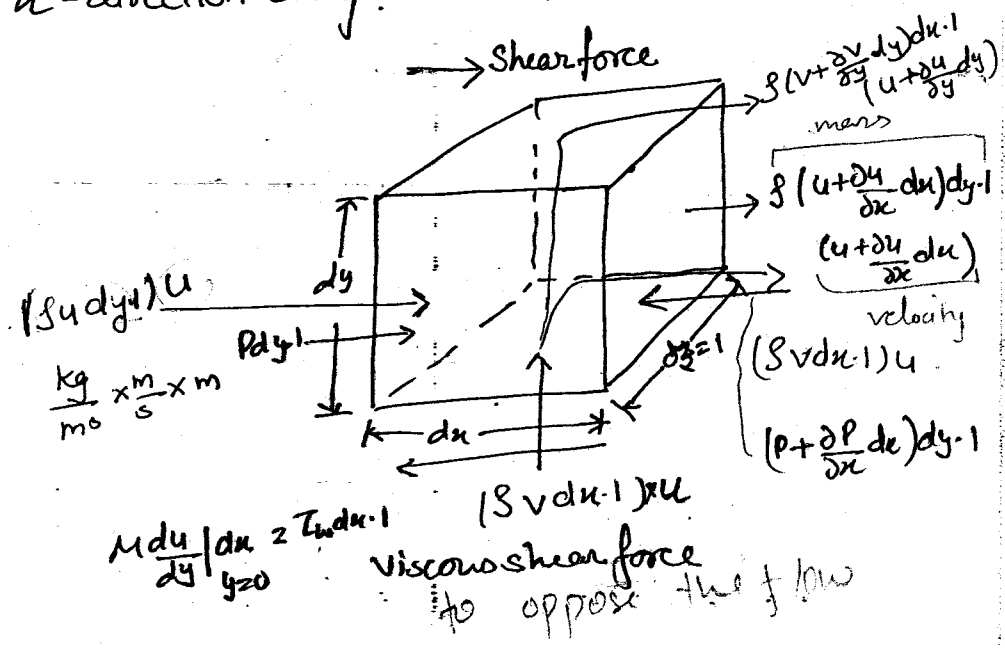 x-direction only.
→ Shear force
ρ(v+∂v/∂y dy)dx·1
(u+∂u/∂y dy)
mass
ρ(u+∂u/∂x dx)dy·1
(u+∂u/∂x dx)
velocity
dy
(ρu dy·1)u
Pdy·1
kg/m³ × m/s × m
dz=1
(ρvdx·1)u
(P+∂P/∂x dx)dy·1
dx
(ρvdx·1)×u
μ du/dy|y=0 dx = τw dx·1
viscous shear force
to oppose the flow